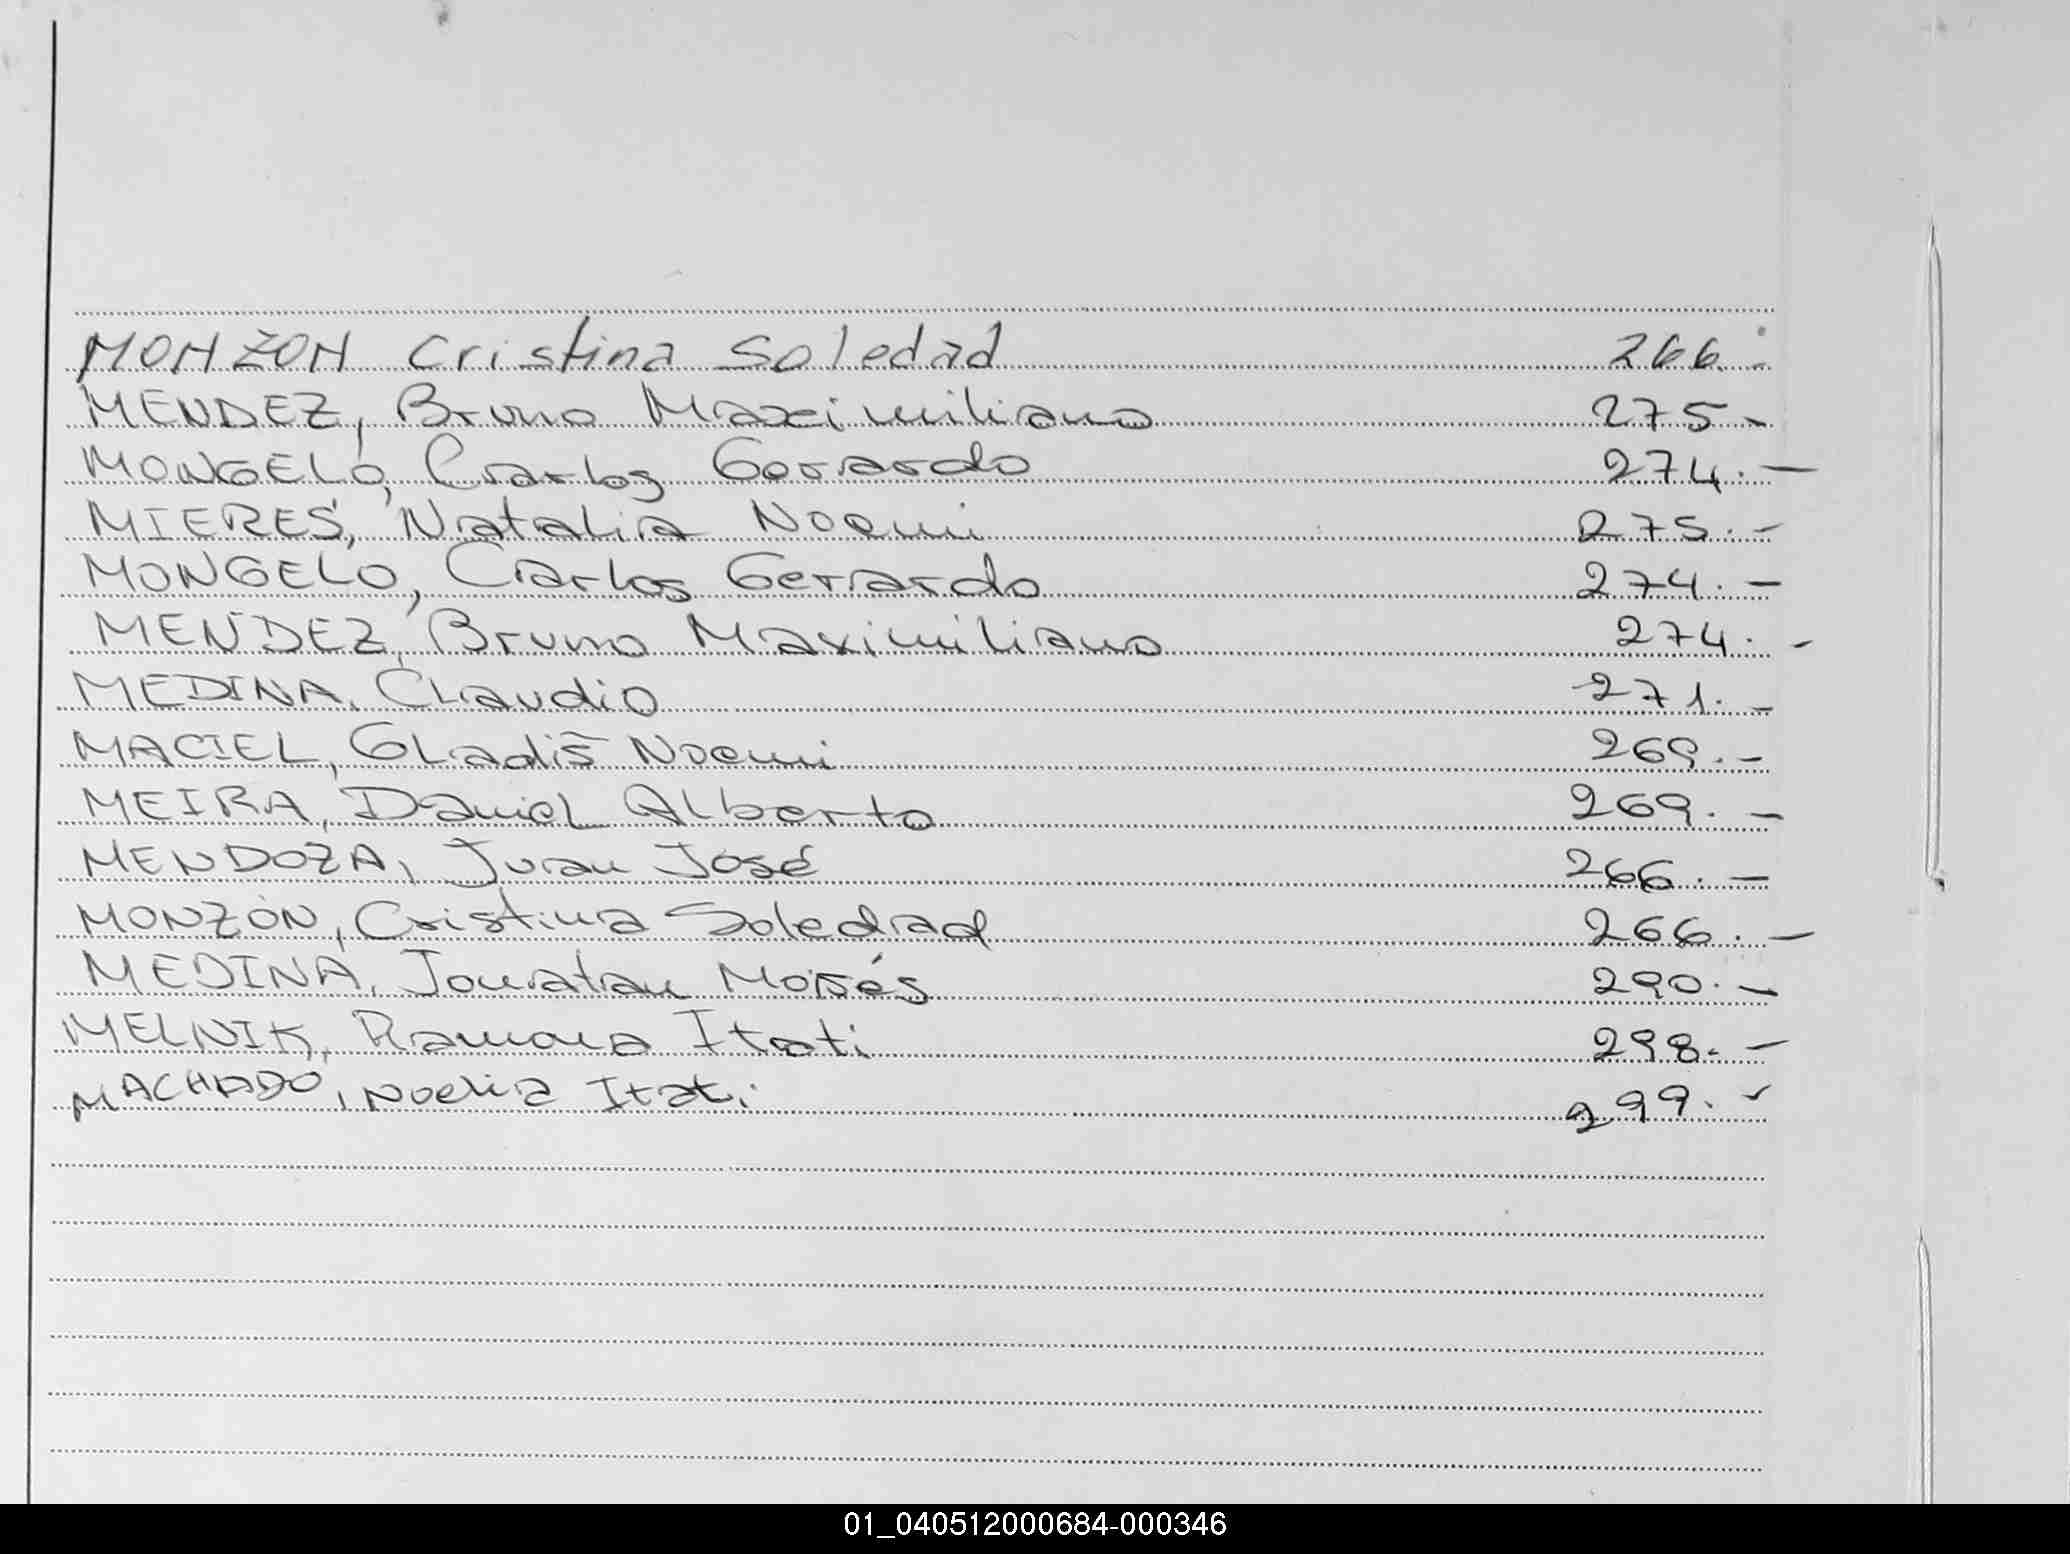 MONZON Cristina Soledad 266.-
MENDEZ, Bruno Maximiliano 275.-
MONGELO, Carlos Gerardo 274.-
MIERES, Natalia Noemi 275.-
MONGELO, Carlos Gerardo 274.-
MENDEZ, Bruno Maximiliano 274.-
MEDINA, Claudio 271.-
MACIEL, Gladis Noemi 269.-
MEIRA, Daniel Alberto 269.-
MENDOZA, Juan José 266.-
MONZÓN, Cristina Soledad 266.-
MEDINA, Jonatan Moisés 290.-
MELNIK, Ramona Itati 298.-
MACHADO, Noelia Itati 299.-
01_040512000684-000346